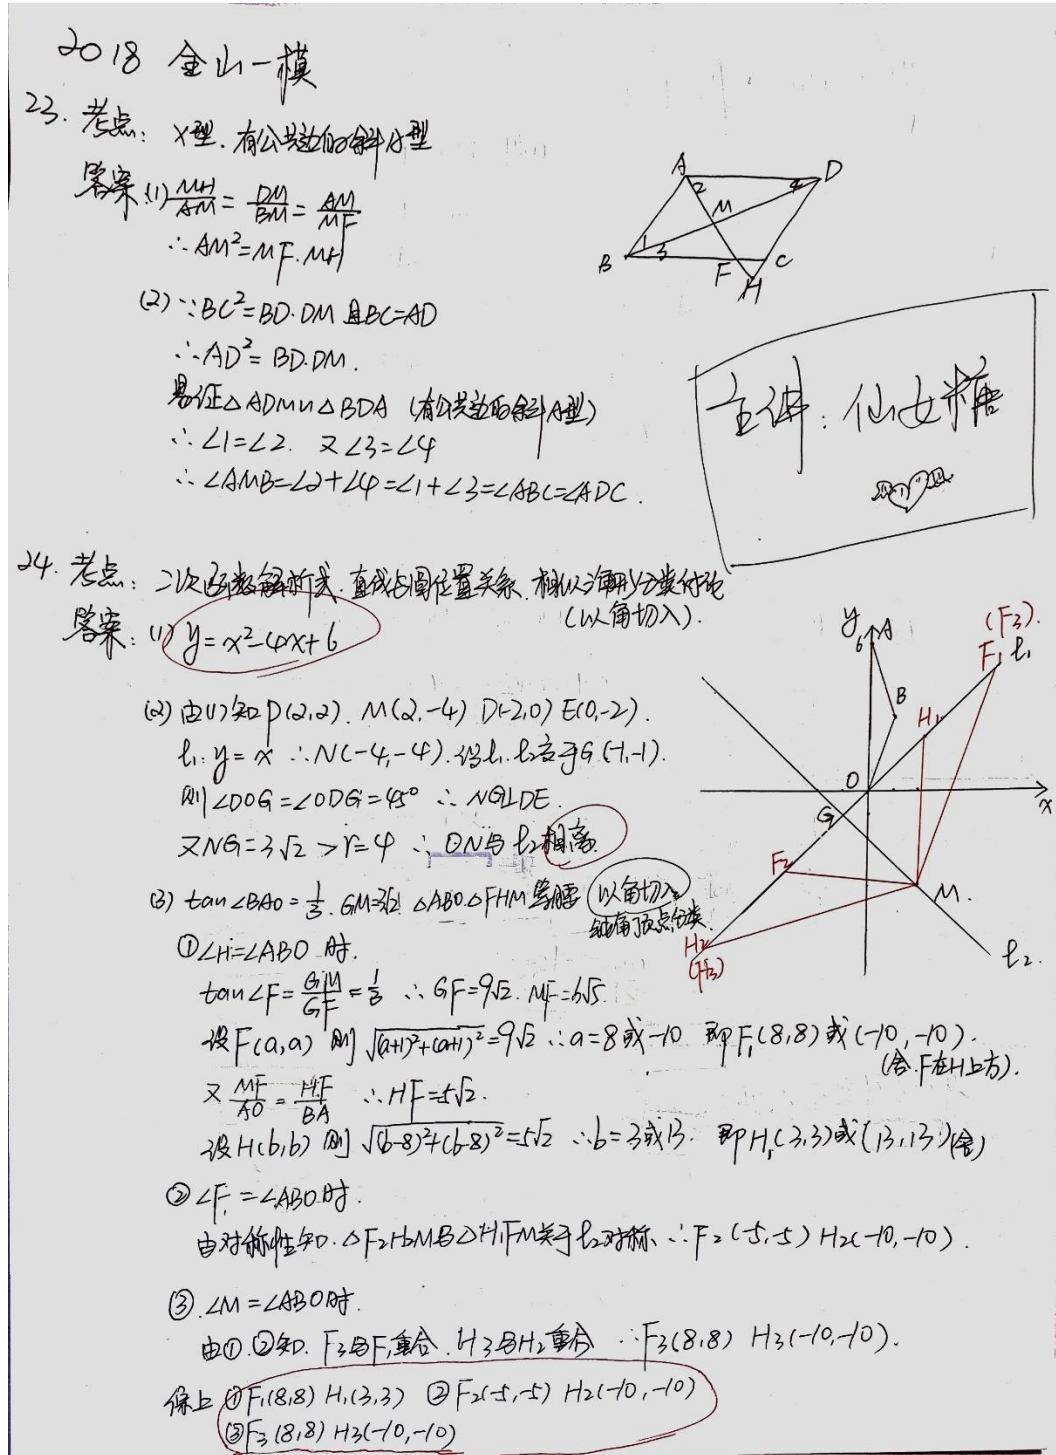 2018 金山一模
23. 考点: X型. 有公共边的斜A型
答案: (1) MH/AM = DM/BM = AM/MF
∴AM²=MF·MH
(2) ∵BC²=BD·DM 且BC=AD
∴AD²=BD·DM.
易证△ADM∽△BDA (有公共边的斜A型)
∴∠1=∠2. 又∠3=∠4
∴∠AMB=∠2+∠4=∠1+∠3=∠ABC=∠ADC.
A
D
2
4
M
1
3
B
F
C
H
主讲: 仙女糖
24. 考点: 二次函数解析式. 直线与圆位置关系. 相似三角形分类讨论
(以角切入).
答案: (1) y=x²-4x+6
(2) 由(1)知P(2,2). M(2,-4) D(-2,0) E(0,-2).
l₁: y=x ∴N(-4,-4). 设l₁.l₂交于G(-1,-1).
则∠DOG=∠ODG=45° ∴NG⊥DE.
又NG=3√2>r=4 ∴⊙N与l₂相离.
(3) tan∠BAO=1/3. GM=3√2. △ABO.△FHM 等腰 (以角切入)
钝角顶点分类.
①∠H=∠ABO 时.
tan∠F=GM/GF=1/3 ∴GF=9√2. MF=6√5
设F(a,a) 则√((a+1)²+(a+1)²)=9√2 ∴a=8或-10 即F₁(8,8)或(-10,-10).
(舍.F在H上方).
又MF/AO=HF/BA ∴HF=5√2.
设H(b,b) 则√((b-8)²+(b-8)²)=5√2 ∴b=3或13. 即H₁(3,3)或(13,13)(舍)
②∠F=∠ABO时.
由对称性知.△F₂H₂M与△H₁F₁M关于l₂对称 ∴F₂(-5,-5) H₂(-10,-10).
③.∠M=∠ABO时.
由①.②知. F₃与F₁重合. H₃与H₂重合 ∴F₃(8,8) H₃(-10,-10).
综上 ①F₁(8,8) H₁(3,3) ②F₂(-5,-5) H₂(-10,-10)
③F₃(8,8) H₃(-10,-10)
y
6
A
(F₃).
F₁
l₁
B
H₁
O
x
G
F₂
M.
H₂
(H₃)
l₂.